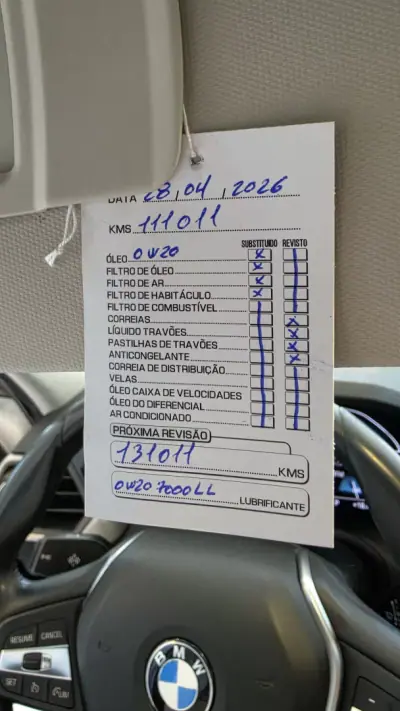 DATA 28/04/2026
KMS 111011
SUBSTITUIDO REVISTO
ÓLEO 0W20 x
FILTRO DE ÓLEO x
FILTRO DE AR x
FILTRO DE HABITÁCULO x
FILTRO DE COMBUSTÍVEL
CORREIAS x
LÍQUIDO TRAVÕES x
PASTILHAS DE TRAVÕES x
ANTICONGELANTE x
CORREIA DE DISTRIBUIÇÃO
VELAS
ÓLEO CAIXA DE VELOCIDADES
ÓLEO DO DIFERENCIAL
AR CONDICIONADO
PRÓXIMA REVISÃO
131011 KMS
0W20 7000LL LUBRIFICANTE
RESUME CANCEL
SET LIM
BMW